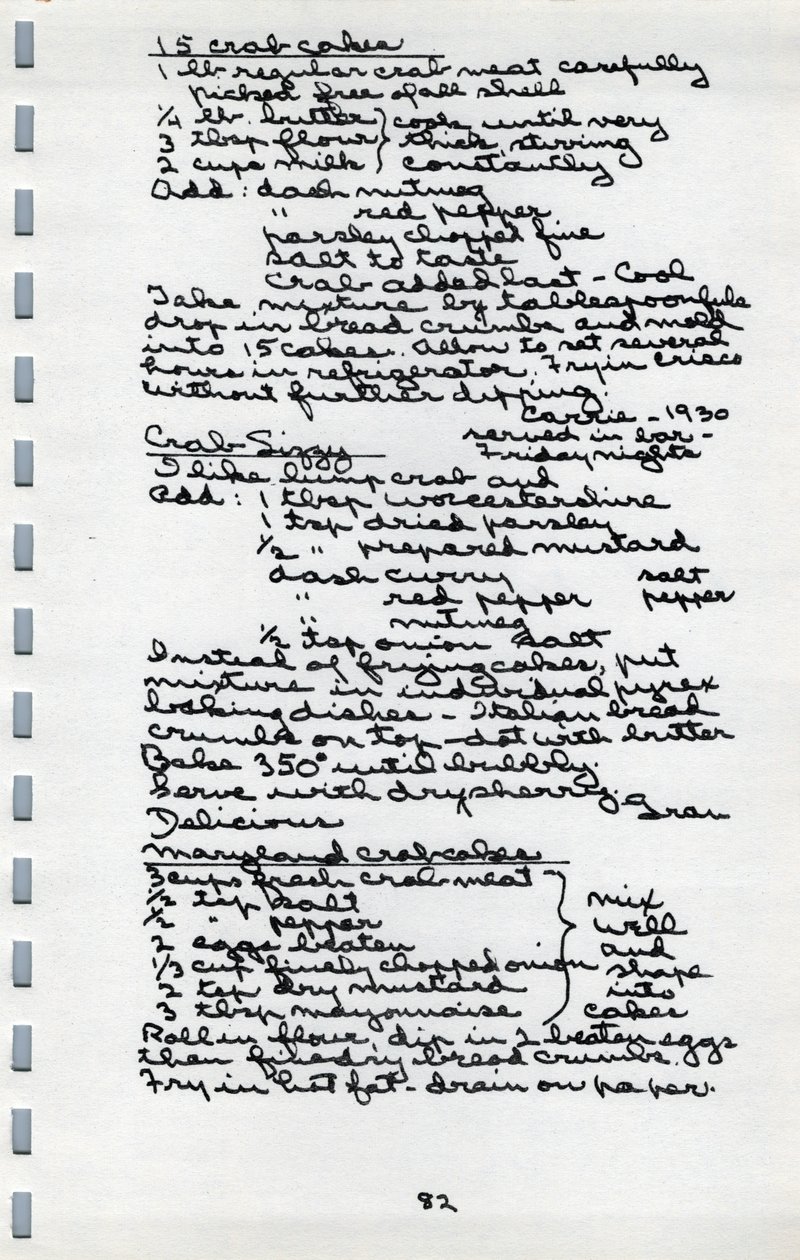 15 crab cakes
1 lb regular crab meat carefully
picked free of all shell
1/4 lb. butter } cook until very
3 tbsp flour } thick, stirring
2 cups milk } constantly
Add: dash nutmeg
" red pepper
parsley chopped fine
salt to taste
Crab added last - Cool
Take mixture by tablespoonfuls
drop in bread crumbs and mold
into 15 cakes. Allow to set several
hours in refrigerator. Fry in Crisco
without further dipping.
Carrie - 1930
served in bar -
Friday nights
Crab Sizzy
I like lump crab and
Add: 1 tbsp worcestershire
1 tsp dried parsley
1/2 " prepared mustard
dash curry salt
" red pepper pepper
" nutmeg
1/2 tsp onion salt
Instead of frying cakes, put
mixture in individual pyrex
baking dishes - Italian bread
crumbs on top - dot with butter
Bake 350° until bubbly.
Serve with dry sherry. Gran
Delicious
Maryland crabcakes
3 cups fresh crab meat
1/2 tsp salt mix
1/2 " pepper well
2 eggs beaten and
1/3 cup finely chopped onion shape
2 tsp dry mustard into
3 tbsp mayonnaise cakes
Roll in flour, dip in 2 beaten eggs
then fine dry bread crumbs.
Fry in hot fat - drain on paper.
82